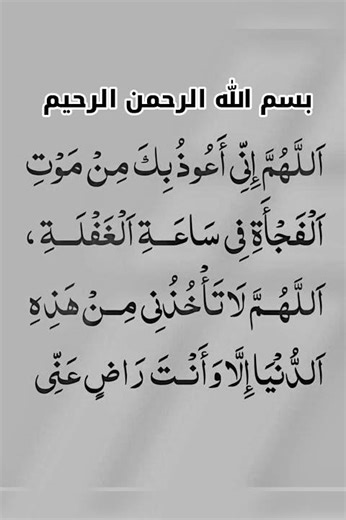 بسم الله الرحمن الرحيم
اَللَّهُمَّ إِنِّي أَعُوذُ بِكَ مِنْ مَوْتِ
اَلْفَجْأَةِ فِي سَاعَـةِ اَلْغَفْلَـةِ ،
اَللَّهُـمَّ لَا تَأْخُذْنِي مِـنْ هَذِهِ
اَلدُّنْيَا إِلَّا وَأَنْـتَ رَاضٍ عَنِّي